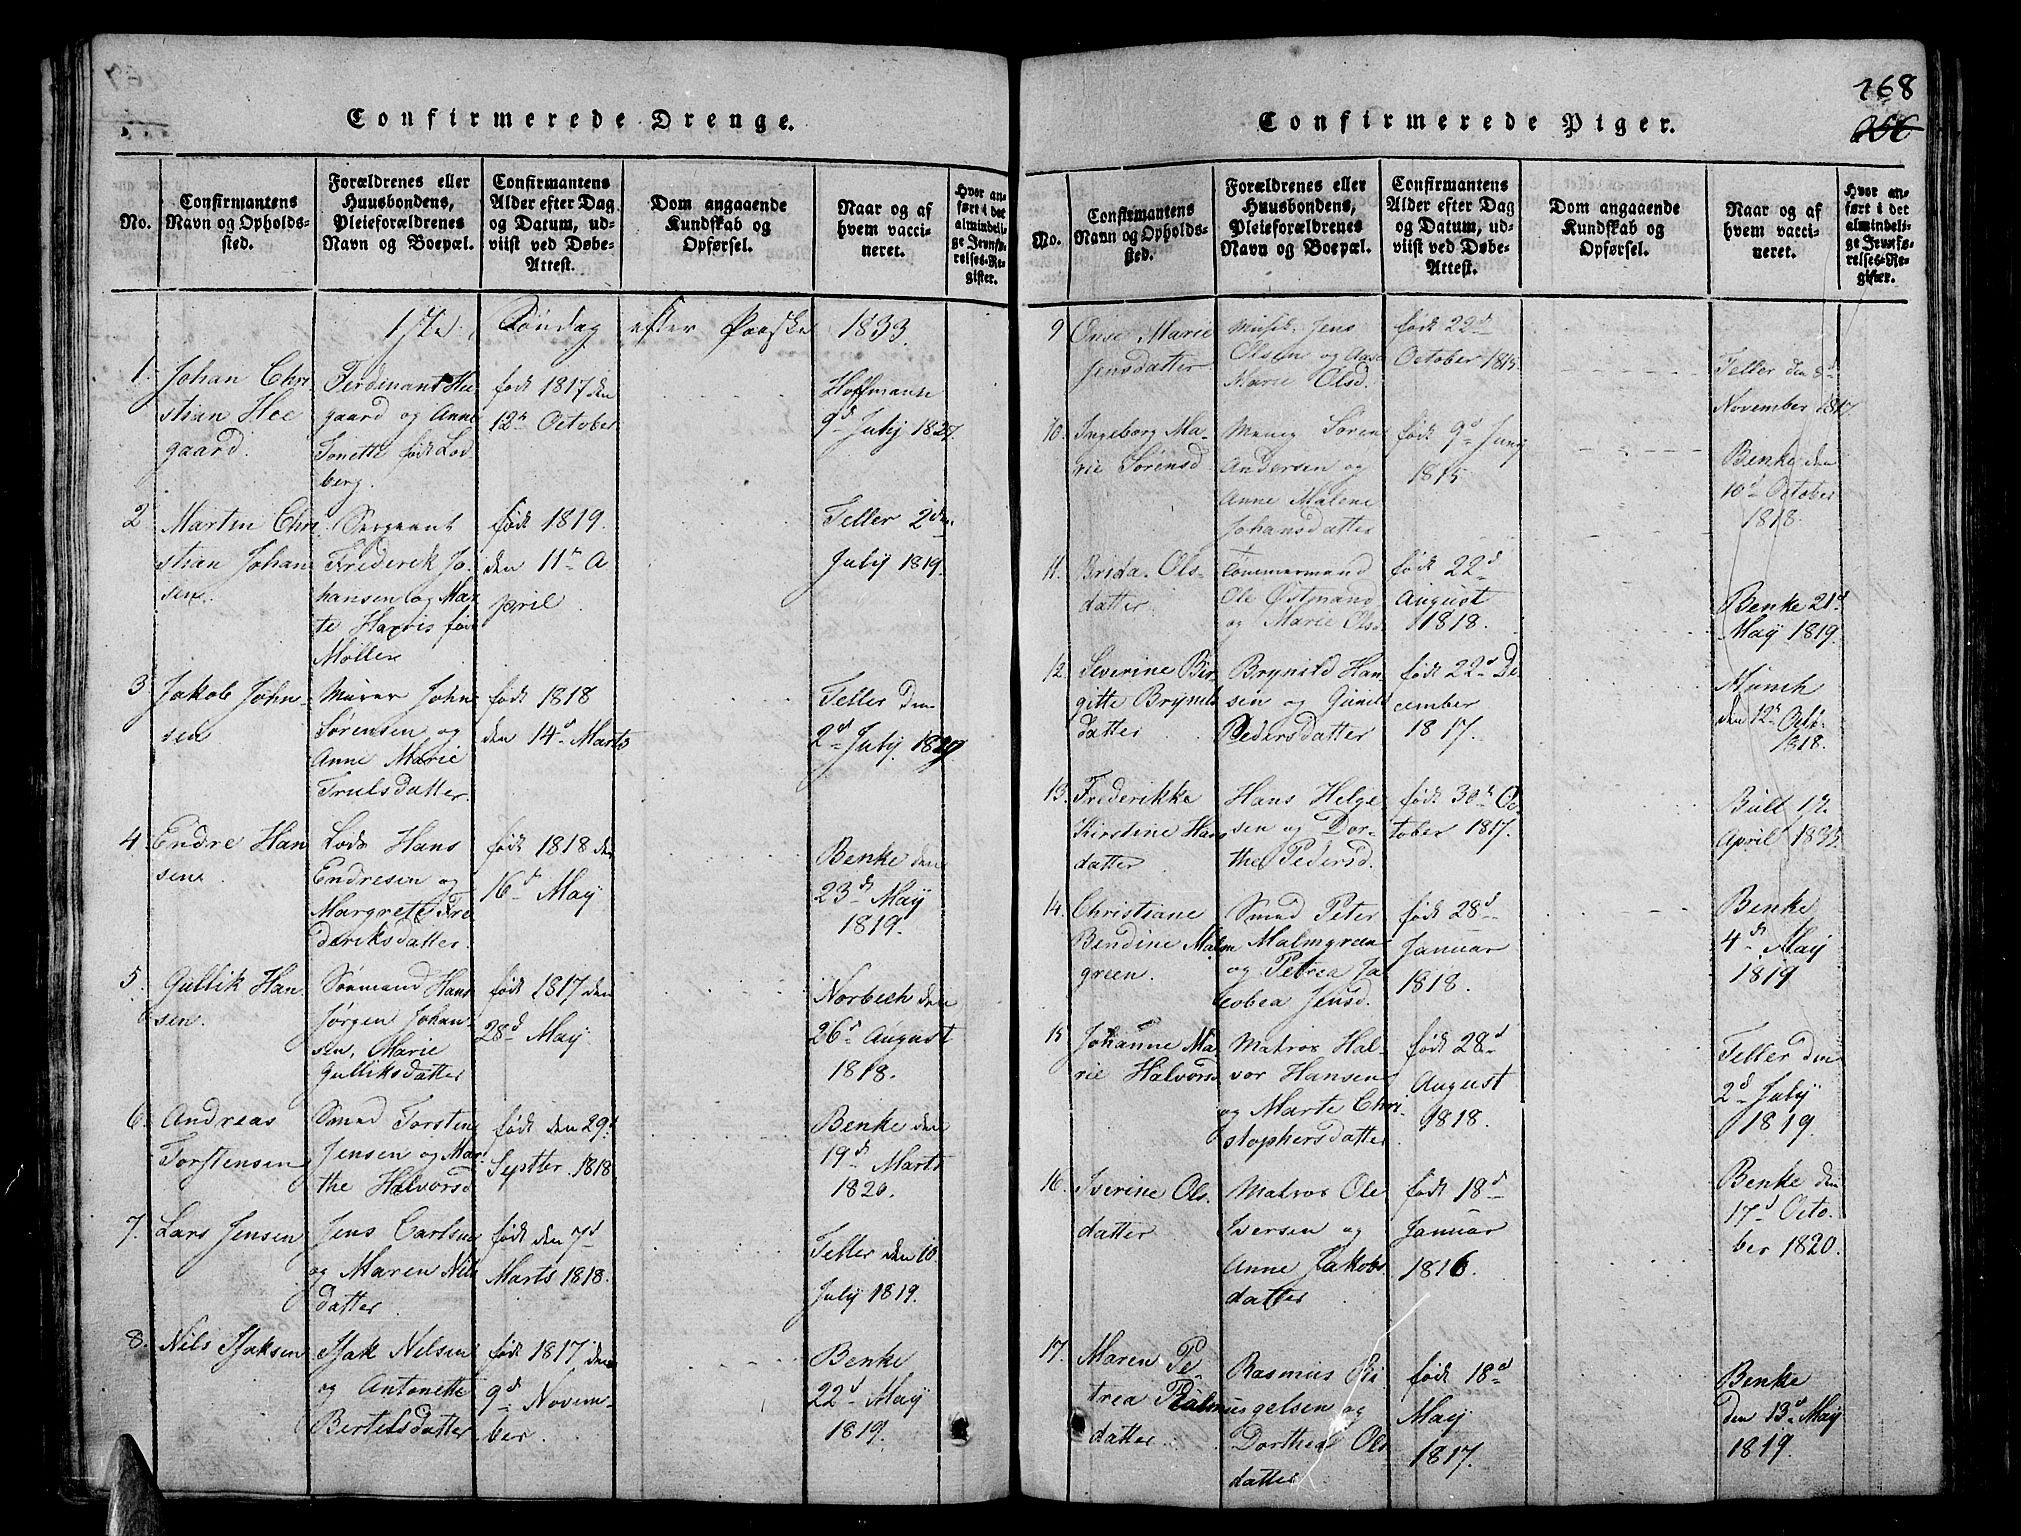 168
Confirmerede Drenge.
No.
Confirmantens
Navn og Opholds-
sted.
Forældrenes eller
Huusbondens,
Pleieforældrenes
Navn og Boepæl.
Confirmantens
Alder efter Dag
og Datum, ud-
viist ved Døbe-
Attest.
Dom angaaende
Kundskab og
Opførsel.
Naar og af
hvem vacci-
neret.
Hvor an-
ført i det
almindeli-
ge Jevnfø-
relses-Re-
gister.
17de Søndag efter Paaske 1833.
1.
Johan Chri
stian Hee
gaard.
Ferdinant He
gaard og Anne
Tonette født Lod
berg.
født 1817 den
12te October
Hoffmann
9d July 1827.
2
Martin Chri
stian Johan
sen.
Sergeant
Frederik Jo-
hansen og Mar
te Harris født
Møller
født 1819.
den 11te A
pril
Teller 2den
July 1819.
3
Jakob John-
sen
Murer John
Sørensen og
Anne Marie
Trulsdatter.
født 1818
den 14d Marts
Teller den
2d July 1829
4
Endre Han
sen.
Lods Hans
Endresen og
Margrete Fre
deriksdatter.
født 1818 den
16d May
Benke den
23d May
1819.
5.
Gullik Han-
sen.
Sømand Hans
Jørgen Johan-
sen, Marie
Gulliksdatter
født 1817 den
28d May
Norbech den
26d August
1818.
6.
Andreas
Torstensen
Smed Torsten
Jensen og Mar
the Halvorsd
født den 29d
Septter 1818
Benke den
19d Marts
1820.
7.
Lars Jensen
Jens Carlsen
og Maren Nils
datter.
født den 7d
Marts 1818.
Teller den 10
July 1819.
8.
Nils Isaksen
Isak Nelsen
og Antonette
Bertelsdatter
født 1817 den
9d Novem-
ber.
Benke
22d May
1819.
Confirmerede Piger.
No.
Confirmantens
Navn og Opholds-
sted.
Forældrenes eller
Huusbondens,
Pleieforældrenes
Navn og Boepæl.
Confirmantens
Alder efter Dag
og Datum, ud-
viist ved Døbe-
Attest.
Dom angaaende
Kundskab og
Opførsel.
Naar og af
hvem vacci-
neret.
Hvor an-
ført i det
almindeli-
ge Jevnfø-
relses-Re-
gister.
9
Marie
Jensdatter
Jens
Olsen og Aase
Marie Olsd.
født 22d
October 1815.
Teller den 8d
November 1817.
10.
Ingeborg Ma-
rie Sørensd
Søren
Andersen og
Anne Malene
Johansdatter
født 9d Juny
1815
Benke den
10d October
1818.
11.
Brida Ols-
datter
Tømmermand
Ole Østmand
og Marie Olsd
født 22d
August
1818.
Benke 21d
May 1819.
12.
Severine Bir
gitte Brynild
datter
Brynild Han
sen og Gunild
Pedersdatter
født 22d De
cember
1817.
Munch
den 12te Octo.
1818.
13.
Frederikke
Kirstine Hans
datter
Hans Helge
sen og Dor-
the Pedersd.
født 30te Oc
tober 1817.
Bull 12
April 1833.
14.
Christiane
Bendine Malm
green.
Smed Peter
Malmgreen
og Petrea Ja
cobea Jensd.
født 28d
Januar
1818.
Benke
4d May
1819
15
Johanne Ma
rie Halvorsd
Matros Hal-
vor Hansen
og Marte Chri-
stophersdatter
født 28d
August
1818.
Teller den
2d July
1819.
16.
Iverine Ols-
datter
Matros Ole
Iversen og
Anne Jakobs
datter
født 18d
Januar
1816.
Benke den
17d Octo.
ber 1820.
17.
Maren Pe-
trea Rasmus
datter
Rasmus Ri-
gelsen og
Dorthea Ols
datter
født 18d
May
1817.
Benke
den 13d May
1819.